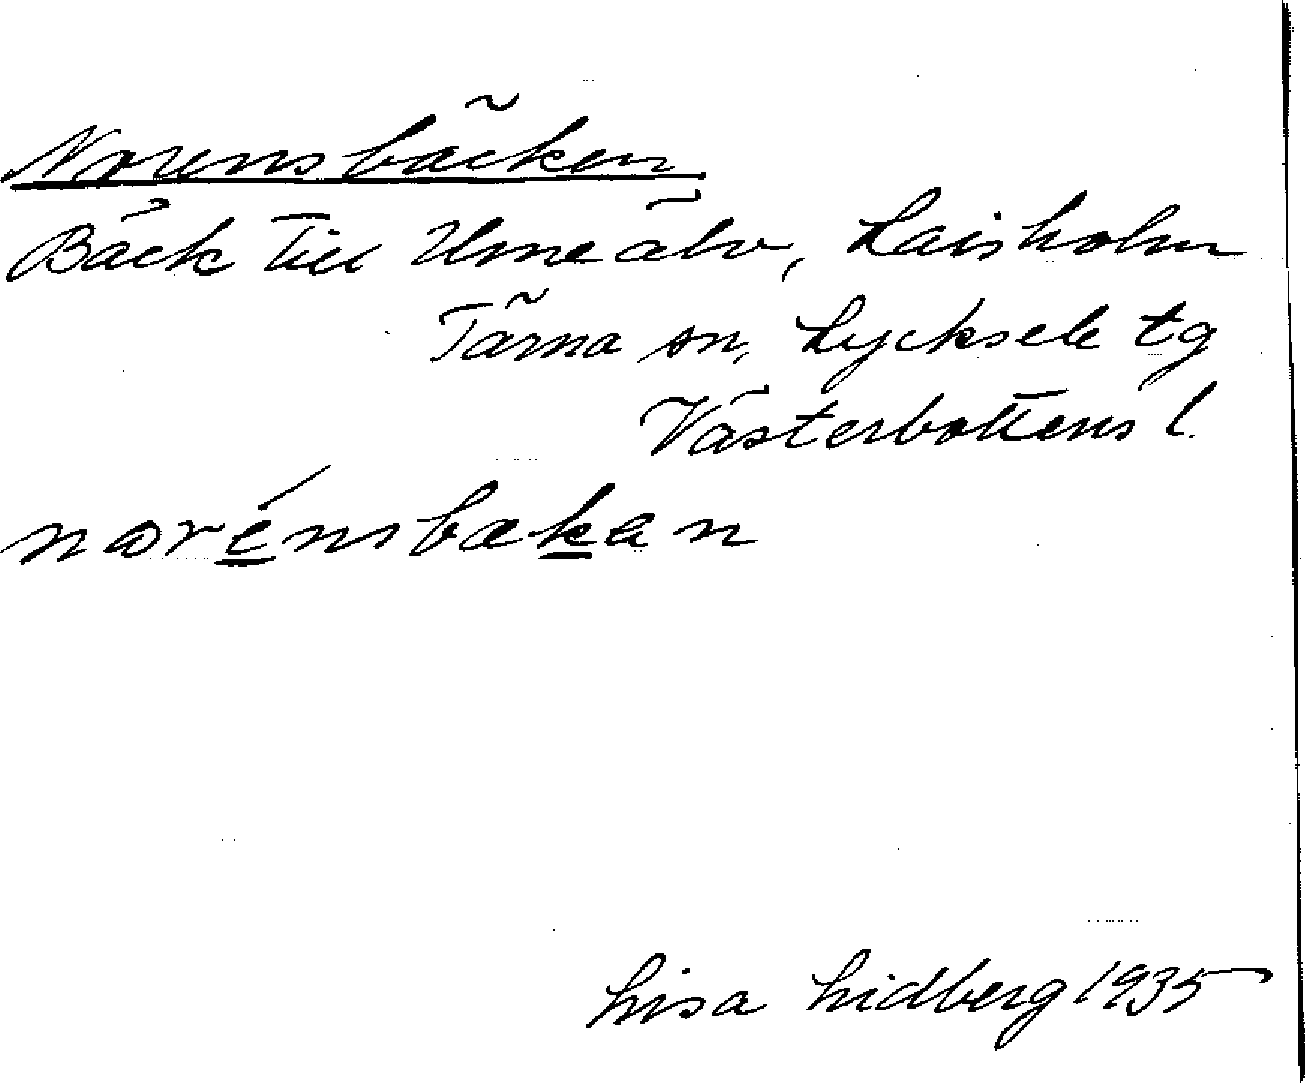 Norensbäcken
Bäck till Umeälv, Laisholm
Tärna sn, Lycksele tg
Västerbottens l.
norénsbækan
Lisa Lidberg 1935